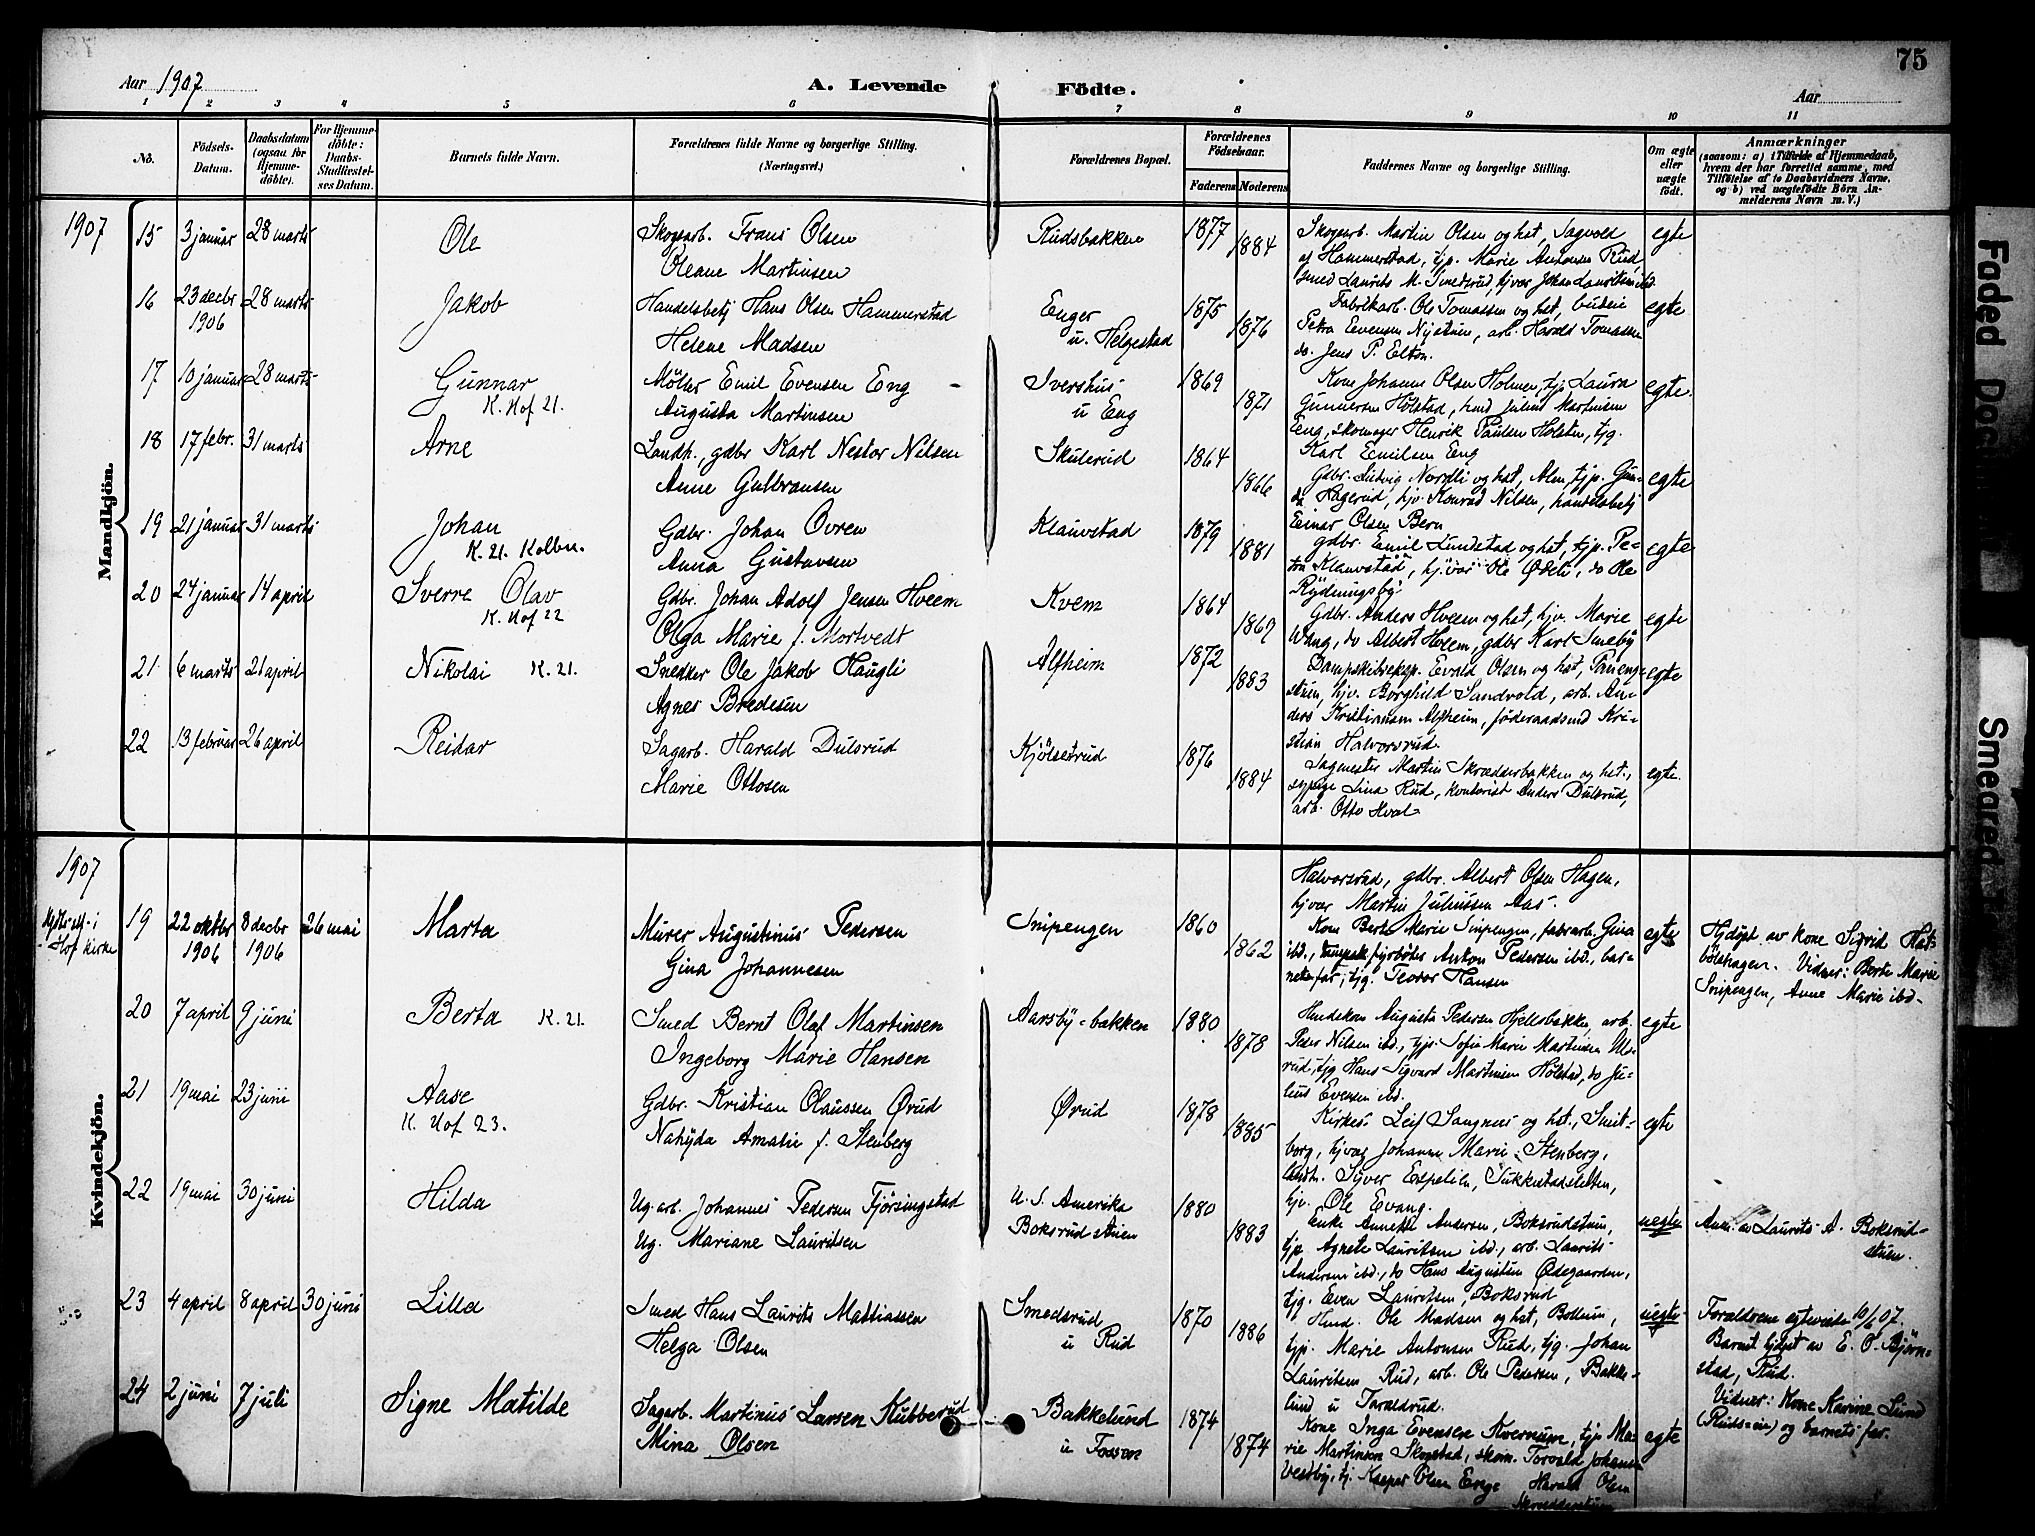 75
Aar 1907
A. Levende Födte.
Aar
1 2 3 4 5 6 7 8 9 10 11
No.
Födsels-Datum.
Daabsdatum (ogsaa for Hjemmedöbte).
For Hjemmedöbte: Daabs-Stadfæstelses Datum.
Barnets fulde Navn.
Forældrenes fulde Navne og borgerlige Stilling. (Næringsvei.)
Forældrenes Bopæl.
Forældrenes Födselsaar.
Faderens Moderens
Faddernes Navne og borgerlige Stilling.
Om ægte eller uægte födt.
Anmærkninger
(saasom: a) i Tilfælde af Hjemmedaab, hvem der har forrettet samme, med Tilföielse af to Daabsvidners Navne, og b) ved uægtefödte Börn Anmelderens Navn m. V.)
Mandkjön.
1907 15 3 januar 28 marts Ole
Skogsarb. Frans Olsen
Oleane Martinsen
Rudsbakken 1877 1884
Skogsarb. Martin Olsen og hst, Sagvold
af Hammerstad, tjp. Marie Antonsen Rud,
smed Laurits M. Smedsrud, tjvar Johan Lauritsen ibd.
egte
16 23 decbr 1906 28 marts Jakob
Handelsbetj Hans Olsen Hammerstad
Helene Madsen
Enger u. Helgestad 1875 1876
Fabrikarb. Ole Tomassen og hst, budeie
Petra Evensen Nystuen, arb. Harald Tomassen
do. Jens P. Elton.
egte
17 10 januar 28 marts Gunnar
K. Hof 21.
Möller Emil Evensen Eng
Augusta Martinsen
Ivershus u Eng 1869 1871
Kone Johanne Olsen Holmen, tjp Laura
Gunnersen Holstad, hmd Julius Martinsen
Eng, skomager Henrik Paulsen Holsten, tjg.
Karl Emilsen Eng
egte.
18 17 febr. 31 marts Arne
Landh., gdbr Karl Nestor Nilsen
Anne Gulbransen
Skulerud 1864 1866
Gdbr. Ludvig Nordli og hst, Alm, tjp. Gunda
Hagerud, hjv. Konrad Nilsen, handelsbetj
Einar Olsen Bern
egte
19 21 januar 31 marts Johan
K. 21. Kolbu.
Gdbr. Johan Övren
Anna Gustavsen
Klauvstad 1879 1881
gdbr. Emil Lundstad og hst, tjp. Petra
Klauvstad, hj.var Ole Ødeli, do Ole
Rydningsby
egte
20 24 januar 14 april Sverre Olav
K. Hof 22
Gdbr. Johan Adolf Jensen Hveem
Olga Marie f. Mortvedt
Kvem 1864 1869
Gdbr. Anders Hveem og hst, hjv. Marie
Wang, do Albert Hveem, gdbr Karl Smeby
egte
21 6 marts 21 april Nikolai K. 21.
Snedker Ole Jakob Haugli
Agnes Bredesen
Alfheim 1872 1883
Dampskibsexp. Evald Olsen og hst,
hjv. Borghild Sandvold, arb. Anders
Kristiansen Alfheim, föderaadsmd Kristian
Halvorsrud
egte
22 13 februar 26 april Reidar
Sagarb. Harald Dulsrud
Marie Ottosen
Kjölsetrud 1876 1884
Sagmester Martin Skrædderbakken og hst.,
sypige Lina Rud, kontorist Anders Dulsrud,
arb. Otto Hval
egte.
Kvindekjön.
1907
Hof kirke
Halvorsrud, gdbr. Albert Olsen Hagen,
hjvar Martin Juliussen Aas.
19 22 oktbr 1906 8 decbr 1906 26 mai Marta
Murer Augustinus Pedersen
Gina Johannesen
Snipengen 1860 1862
Kone Berte Marie Snipengen, fabrarb. Gina
ibd., fyrböter Anton Pedersen ibd., barnets
far, tjg. Teodor Hansen
egte
Hjdöpt av kone Sigrid Hatsbölehagen. Vidner: Berte Marie
Snipengen, Anne Marie ibd.
20 7 april 9 juni Berta K. 21.
Smed Bernt Olaf Martinsen
Ingeborg Marie Hansen
Aarsby-bakken 1880 1878
Hmdskone Augusta Pedersen Hjellsbakken, arb.
Peder Nilsen ibd., tjp. Sofie Marie Martinsen
tjg Hans Sigvard Martinsen Holstad, do Julius
Evensen ibd.
egte
21 19 mai 23 juni Aase
K. Hof 23.
Gdbr. Kristian Olaussen Ørud
Nahyda Amalie f. Stenberg
Ørud 1878 1885
Kirkes. Leif Sangnes og hst.,
hjvar Johanne Marie Stenberg,
landh. Syver Espelien, Sukkestadsletten,
hjv. Ole Evang.
egte
22 19 mai 30 juni Hilda
Ug. arb. Johannes Pedersen Fjörsingstad
Ug. Mariane Lauritsen
U. S. Amerika
Boksrudstuen 1880 1883
Enke Annette Andersen, Boksrudstuen,
tjp Agnete Lauritsen ibd., arb. Laurits
Andersen ibd., do Hans Augustin Ødegaarden,
tjg. Even Lauritsen, Boksrud
uegte
Anm. av Laurits A. Boksrudstuen.
23 4 april 8 april 30 juni Lilla
Smed Hans Laurits Mattiassen
Helga Olsen
Smedsrud u Rud 1870 1886
Hmd. Ole Madsen og hst,
tjp. Marie Antonsen Rud, tjg. Johan
Lauritsen Rud, arb. Ole Pedersen, Bakkelund
u Taraldrud.
uegte
Foraldrene egteviede 10/6 07.
Barnet hjdöpt av E. O. Björnstad, Rud.
Vidner: Kone Karine Lund
(Rudseie) og barnets far.
24 2 juni 7 juli Signe Matilde
Sagarb. Martinus Larsen Stubberud
Mina Olsen
Bakkelund u Fossen 1874 1874
Kone Inga Evensen Kvernum, tjp Marie
Martinson Skogstad, skom. Torvald Johansen
Vestby, tj. Kasper Olsen Enge Harald Olsen
egte
Faded Doc
Smeared